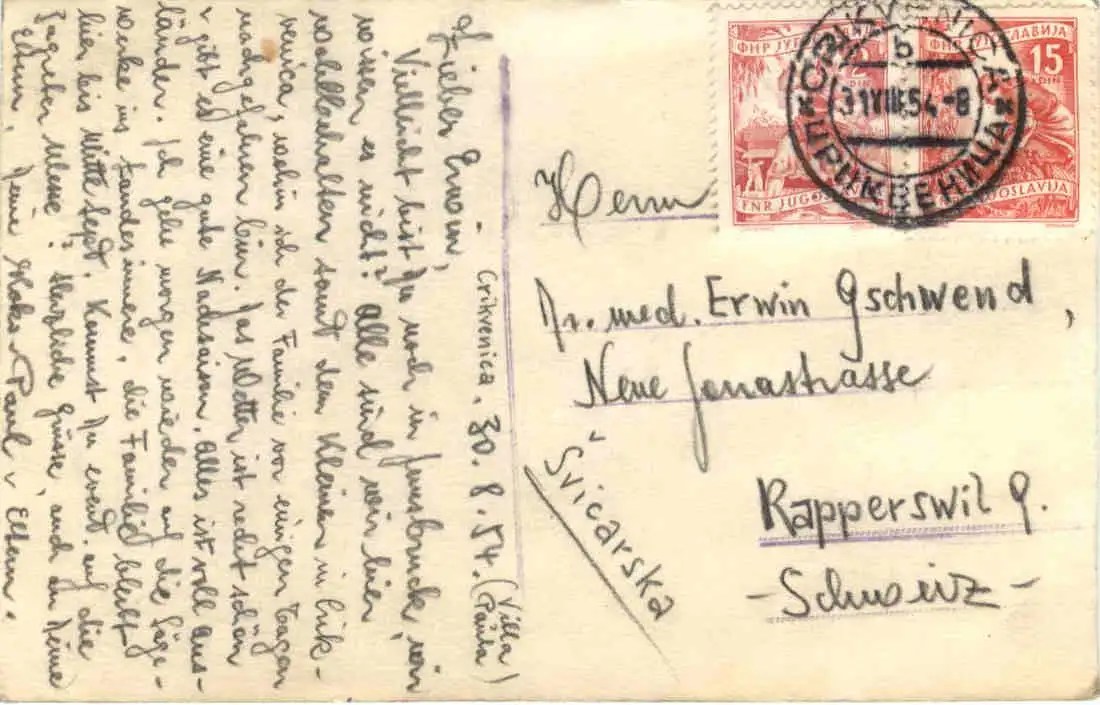 Crikvenica, 30.8.54. (Villa Paula)
Lieber Erwin,
Vielleicht bist Du noch in Innsbruck, wir
wissen es nicht? Alle sind wir hier
wohlbehalten samt den Kleinen in Crik-
venica, wohin ich der Familie vor einigen Tagen
nachgefahren bin. Das Wetter ist recht schön
u gibt es eine gute Nachsaison. Alles ist voll Aus-
länder. Ich gehe morgen wieder auf die Säge-
werke ins Landesinnere, die Familie bleibt
hier bis Mitte Sept. Kommst Du event. auf die
Zagreber Messe? Herzliche Grüsse, auch an Deine
Eltern. Deine Paul u Eltern.
Herrn
Dr. med. Erwin Gschwend,
Neue Jonastrasse
Rapperswil G.
- Schweiz -
Švicarska
ФНР
FNR JUGOS
15
DIN
JUGOSLAVIJA
CRIKVENICA
b
31VIII54-8
ЦРИКВЕНИЦА